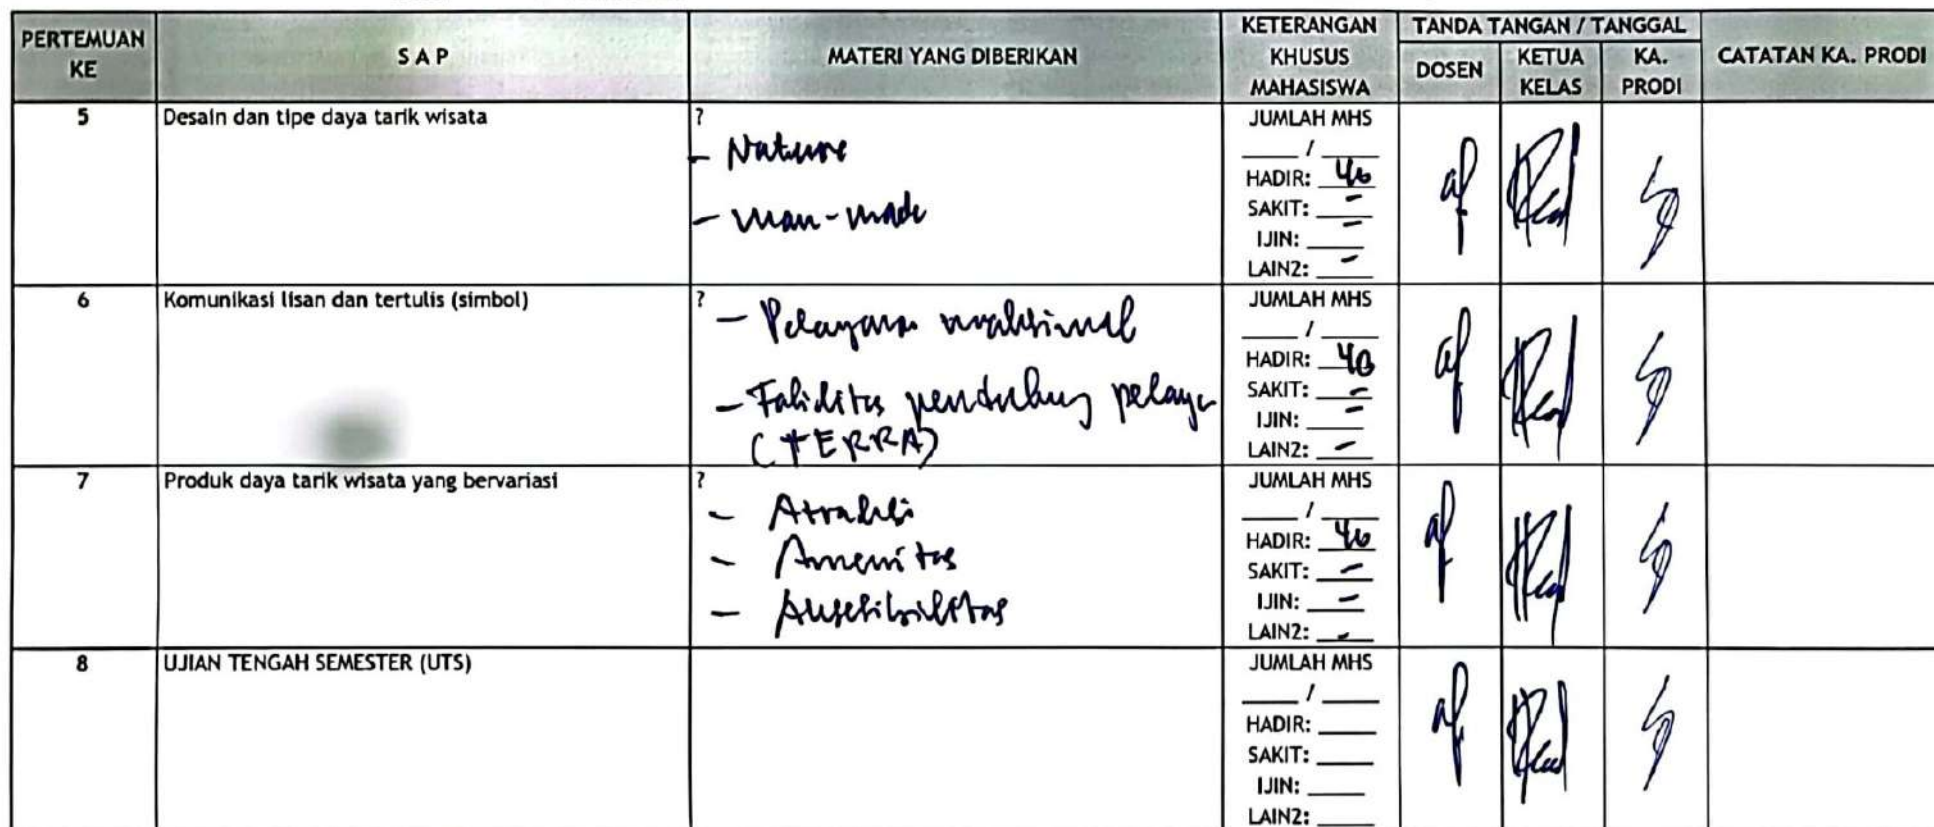 PERTEMUAN KE
S A P
MATERI YANG DIBERIKAN
KETERANGAN KHUSUS MAHASISWA
TANDA TANGAN / TANGGAL
DOSEN
KETUA KELAS
KA. PRODI
CATATAN KA. PRODI
5
Desain dan tipe daya tarik wisata
?
- Nature
- man-made
JUMLAH MHS
___ / ___
HADIR: 40
SAKIT: -
IJIN: -
LAIN2: -
6
Komunikasi lisan dan tertulis (simbol)
?
- maksimal
- pendukung
JUMLAH MHS
___ / ___
HADIR: 40
SAKIT: -
IJIN: -
LAIN2: -
7
Produk daya tarik wisata yang bervariasi
?
- Atraksi
- Amenitas
- Aksesibilitas
JUMLAH MHS
___ / ___
HADIR: 40
SAKIT: -
IJIN: -
LAIN2: -
8
UJIAN TENGAH SEMESTER (UTS)
JUMLAH MHS
___ / ___
HADIR: ___
SAKIT: ___
IJIN: ___
LAIN2: ___